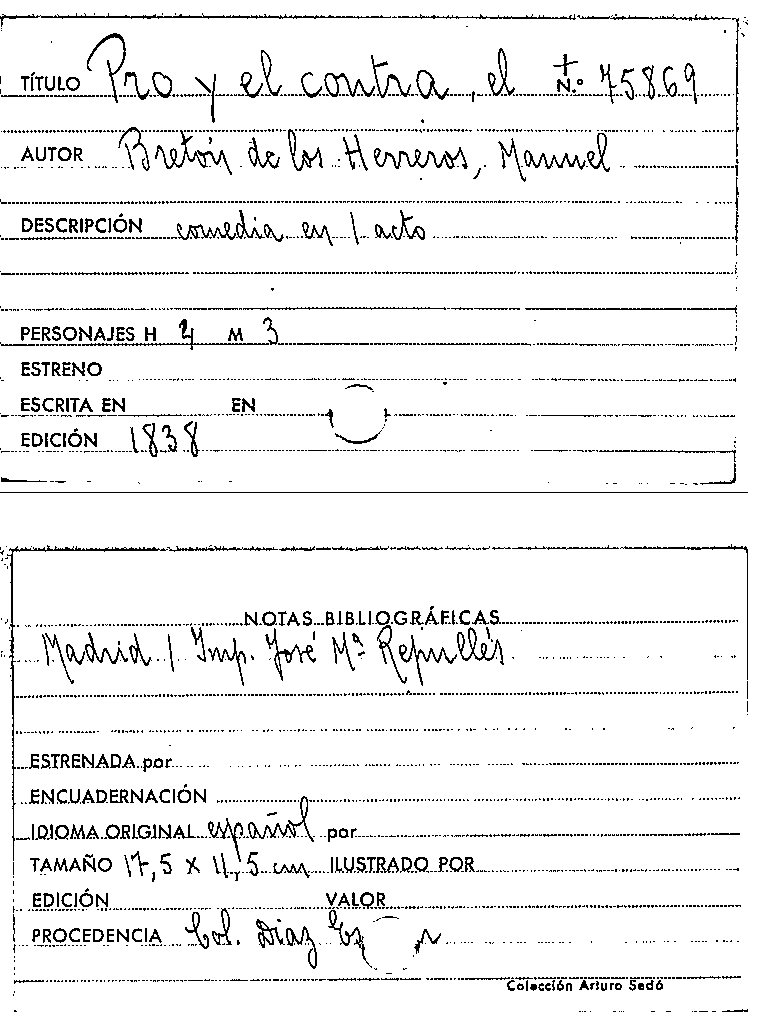 TÍTULO Pro y el contra, el + N.º 75869
AUTOR Bretón de los Herreros, Manuel
DESCRIPCIÓN comedia en 1 acto
PERSONAJES H 4 M 3
ESTRENO
ESCRITA EN EN
EDICIÓN 1838
NOTAS BIBLIOGRÁFICAS
Madrid / Imp. José Mª Repullés
ESTRENADA por
ENCUADERNACIÓN
IDIOMA ORIGINAL español por
TAMAÑO 17,5 X 11,5 cm ILUSTRADO POR
EDICIÓN VALOR
PROCEDENCIA Col. Díaz
Colección Arturo Sedó